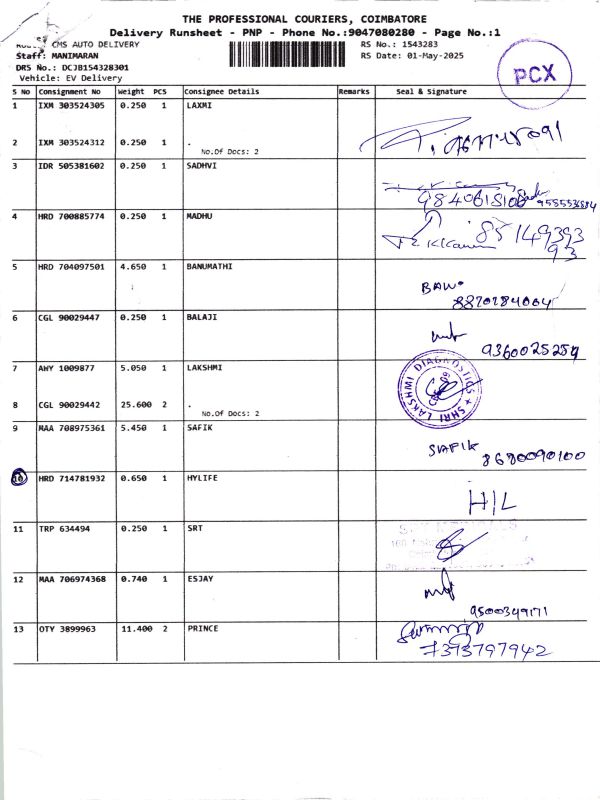 THE PROFESSIONAL COURIERS, COIMBATORE
Delivery Runsheet - PNP - Phone No.:9047080280 - Page No.:1
CMS AUTO DELIVERY
RS No.: 1543283
Staff: MANIMARAN
RS Date: 01-May-2025
DRS No.: DCJB154328301
Vehicle: EV Delivery
PCX
S No Consignment No Weight PCS Consignee Details Remarks Seal & Signature
1 IXM 303524305 0.250 1 LAXMI
2 IXM 303524312 0.250 1 .
No.Of Docs: 2
3 IDR 505381602 0.250 1 SADHVI
4 HRD 700885774 0.250 1 MADHU
8514939393
5 HRD 704097501 4.650 1 BANUMATHI
8870784004
6 CGL 90029447 0.250 1 BALAJI
9360025254
7 AWY 1009877 5.050 1 LAKSHMI
SHRI LAKSHMI DIAGNOSTICS
8 CGL 90029442 25.600 2 .
No.Of Docs: 2
9 MAA 708975361 5.450 1 SAFIK
SAFIK
8680090100
10 HRD 714781932 0.650 1 HYLIFE
H/L
11 TRP 634494 0.250 1 SRT
12 MAA 706974368 0.740 1 ESJAY
9500349171
13 OTY 3899963 11.400 2 PRINCE
7373797942